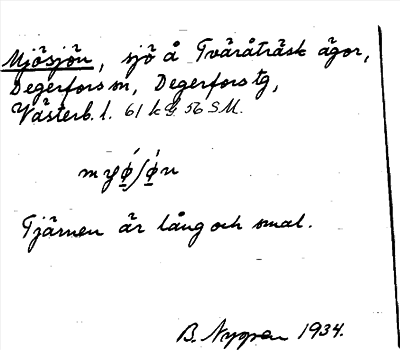 Mjösjön, sjö å Tväråträsk ägor,
Degerfors sn, Degerfors tg,
Västerb. l. 61 kg 56 SM.
Tjärnen är lång och smal.
B. Nygren 1934.